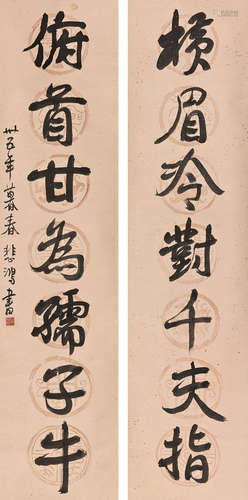 横眉冷對千夫指
俯首甘為孺子牛
卅五年暮春悲鴻書